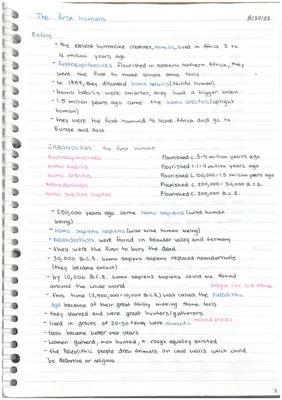 The first humans
8/30/23
Before
- the earliest humanlike creatures, hominids, lived in Africa 3 to
4 million years ago
- Australopithecines flourished in eastern southern Africa, they
were the first to make simple stone tools
- in 1959, they discovered homo habilis (skillful human)
- homo habilis were smarter, they had a bigger brain
- 1.5 million years ago came the homo erectus (upright
human)
- they were the first hominid to leave Africa and go to
Europe and Asia
CHRONOLOGY the first humans
Australopithecines flourished c. 3-4 million years ago
homo habilis flourished c. 1-4 million years ago
homo erectus flourished c. 100,000-1.5 million years ago
Neanderthals flourished c. 200,000-30,000 B.C.E.
homo sapiens sapiens flourished c. 200,000 B.C.E.
- 250,000 years ago came homo sapiens (wise human
being)
- homo sapiens sapiens (wise wise human being)
- Neanderthals were found in Neander valley and Germany
- they were the first to bury the dead
- 30,000 B.C.E. homo sapiens sapiens replaced neanderthals
(they became extinct)
- by 10,000 B.C.E. homo sapiens sapiens could be found
around the whole world
Greek for old stone
- this time (2,500,000-10,000 B.C.E.) was called the Paleolithic
age because of their great ability making stone tools
- they learned and were great hunters/gatherers
moved places
- lived in groups of 20-30 + they were nomadic
- tools became better over years
- women gathered, men hunted, + rough equality existed
- the Paleolithic people drew animals on cave walls which could
be decorative or religious